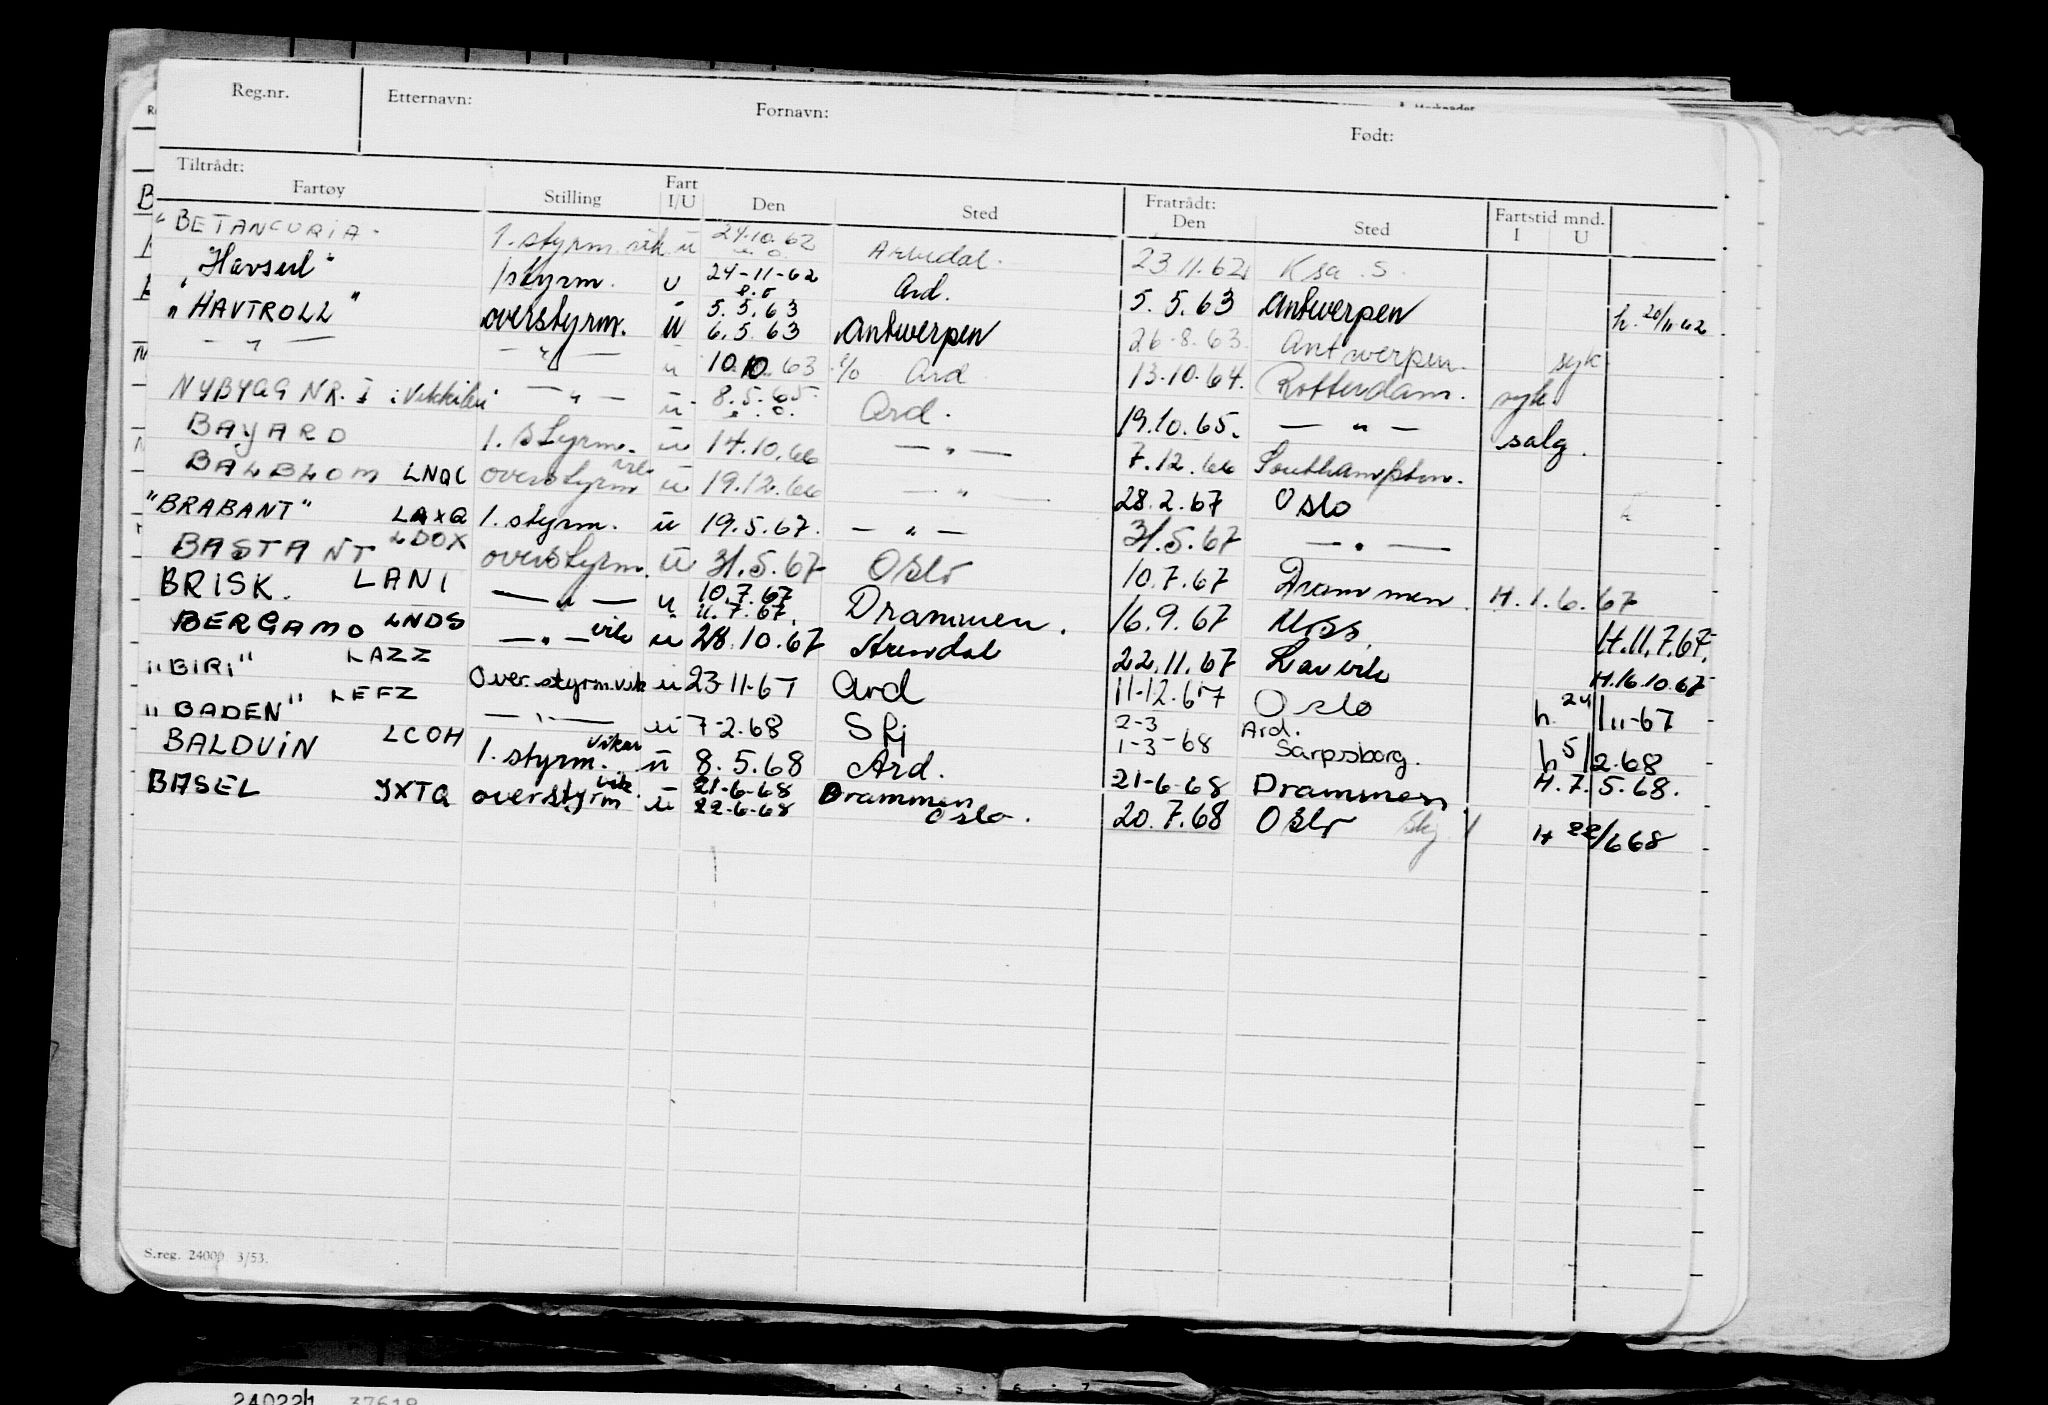 Reg.nr. Etternavn: Fornavn: Født:
Tiltrådt: Fratrådt:
Fartøy Stilling Fart I/U Den Sted Den Sted Fartstid mnd. I U
"BETANCURIA" 1. styrm. vik ü 24.10.62 Arendal. 23.11.62 Ksa. S.
"Havsul" 1styrm. u 24-11-62 Ard. 5.5.63 Antwerpen h. 20/11-62
"HAVTROLL" overstyrm. ü 5.5.63 6.5.63 Antwerpen 26-8.63. Antwerpen. syk
- " - - " - ü 10.10.63 Ard 13-10.64. Rotterdam. syk
NYBYGG NR. I - " - ü 8.5.65. Ard. 19.10.65. - " - salg.
BAYARD 1. Styrm. ü 14.10.66 - " - 7.12.66 Southampton.
BALBLOM LNQC overstyrm vik ü 19.12.66 - " - 28.2.67 Oslo
"BRABANT" LAXQ 1. styrm. ü 19.5.67. - " - 31.5.67 - " -
BASTANT LDOX overstyrm. ü 31.5.67 Oslo 10.7.67 Drammen. H.1.6.67
BRISK. LANI - " - ü 10.7.67 11.7.67. Drammen. 16.9.67 Moss. H.11.7.67.
BERGAMO LNDS - " - vik ü 28.10.67 Arendal 22.11.67 Larvik H.16.10.67
"BIRI" LAZZ Overstyrm.vik ü 23-11-67 Ard 11-12.67 Oslo h. 24/11-67
"BADEN" LEFZ - " - ü 7-2.68 Sfj 2-3 1-3-68 Ard. Sarpsborg. h 5/2.68
BALDUIN LCOH 1. styrm. vikar ü 8.5.68 Ard. 21-6-68 Drammen H.7.5.68.
BASEL JXTQ overstyrm vik. ü 21-6-68 22-6-68 Drammen Oslo. 20.7.68 Oslo H 22/6 68
S.reg. 24000 3/53.
240221 37618